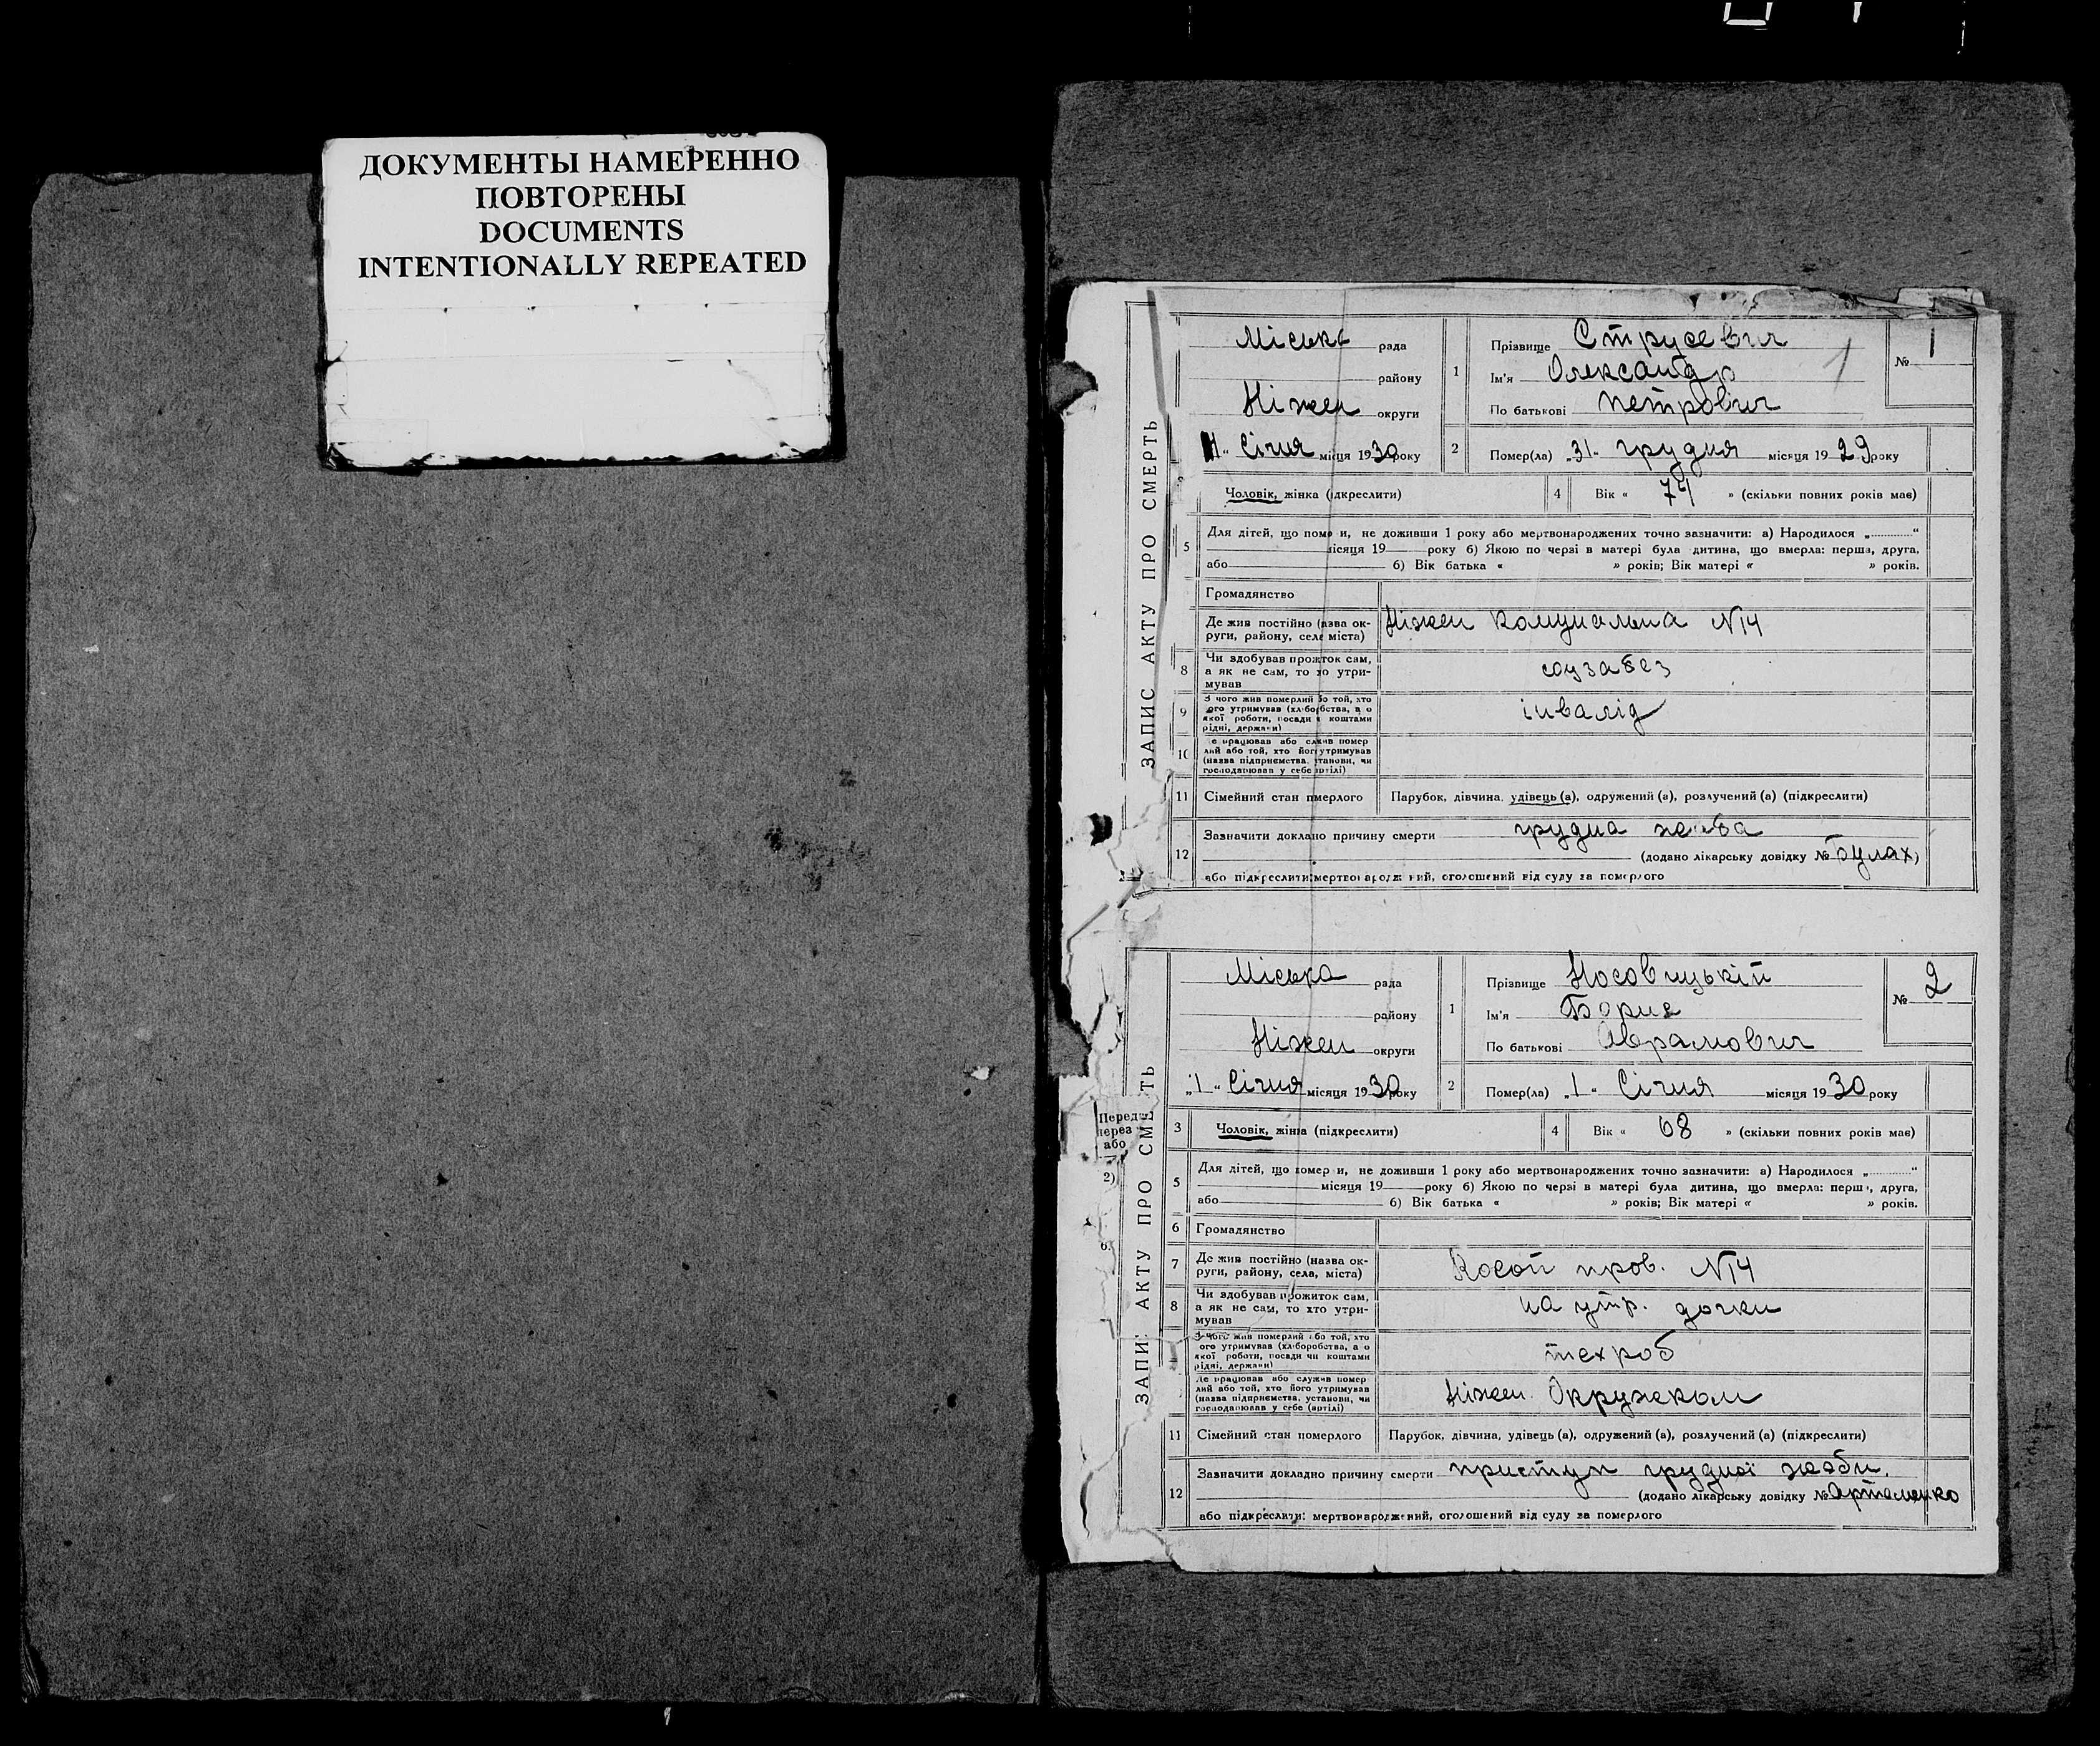 ДОКУМЕНТЫ НАМЕРЕННО
ПОВТОРЕНЫ
DOCUMENTS
INTENTIONALLY REPEATED
ЗАПИС АКТУ ПРО СМЕРТЬ
Міська рада
району
Ніжен округи
Січня місяця 1930 року
1
Прізвище Струсевич
Ім'я Олександр
По батькові Петрович
1
№ 1
2
Помер(ла) „31“ грудня місяця 1929 року
Чоловік, жінка (підкреслити)
4
Вік « 74 » (скільки повних років має)
5
Для дітей, що поме и, не доживши 1 року або мертвонароджених точно зазначити: а) Народилося „............“
місяця 19 року б) Якою по черзі в матері була дитина, що вмерла: перша, друга,
або б) Вік батька « » років; Вік матері « » років.
Громадянство
Де жив постійно (назва ок-
руги, району, села міста)
Ніжен Комунальна №14
8
Чи здобував прожток сам,
а як не сам, то хто утри-
мував
соузабез
9
З чого жив померлий або той, хто
ого утримував (хліборобства, а о
якої роботи, посади и коштами
рідні, держави)
інвалід
10
е працював або служив помер
лий або той, хто його утримував
(назва підприємства, установи, чи
господарював у себе артілі)
11
Сімейний стан пмерлого
Парубок, дівчина, удівець (а), одружений (а), розлучений (а) (підкреслити)
12
Зазначити докладно причину смерти грудна жаба
(додано лікарську довідку № Булах)
або підкреслити: мертвонароджений, оголошений від суду за померлого
ЗАПИ АКТУ ПРО СМЕ ТЬ
Міська рада
району
Ніжен округи
„1“ Січня місяця 1930 року
1
Прізвище Носовицькій
Ім'я Борис
По батькові Аврамович
№ 2
2
Помер(ла) „1“ Січня місяця 1930 року
Перед
через
або
2)
3
Чоловік, жінка (підкреслити)
4
Вік « 68 » (скільки повних років має)
5
Для дітей, що помер и, не доживши 1 року або мертвонароджених точно зазначити: а) Народилося „............“
місяця 19 року б) Якою по черзі в матері була дитина, що вмерла: перш , друга,
або б) Вік батька « » років; Вік матері « » років.
6
Громадянство
7
Де жив постійно (назва ок-
руги, району, села, міста)
Косой пров. №14
8
Чи здобував прожиток сам,
а як не сам, то хто утри-
мував
на утр. дочки
З чого жив померлий або той, хто
ого утримував (хліборобства, а о
якої роботи, посади чи коштами
рідні, держави)
техроб
Де працював або служив помер
лий або той, хто його утримував
(назва підприємства, установи, чи
господарював у себе (артілі)
Ніжен. Окружком
11
Сімейний стан померлого
Парубок, дівчина, удівець (а), одружений (а), розлучений (а) (підкреслити)
12
Зазначити докладно причину смерти приступ грудної жаби.
(додано лікарську довідку № Артеменко
або підкреслити: мертвонароджений, оголошений від суду за померлого